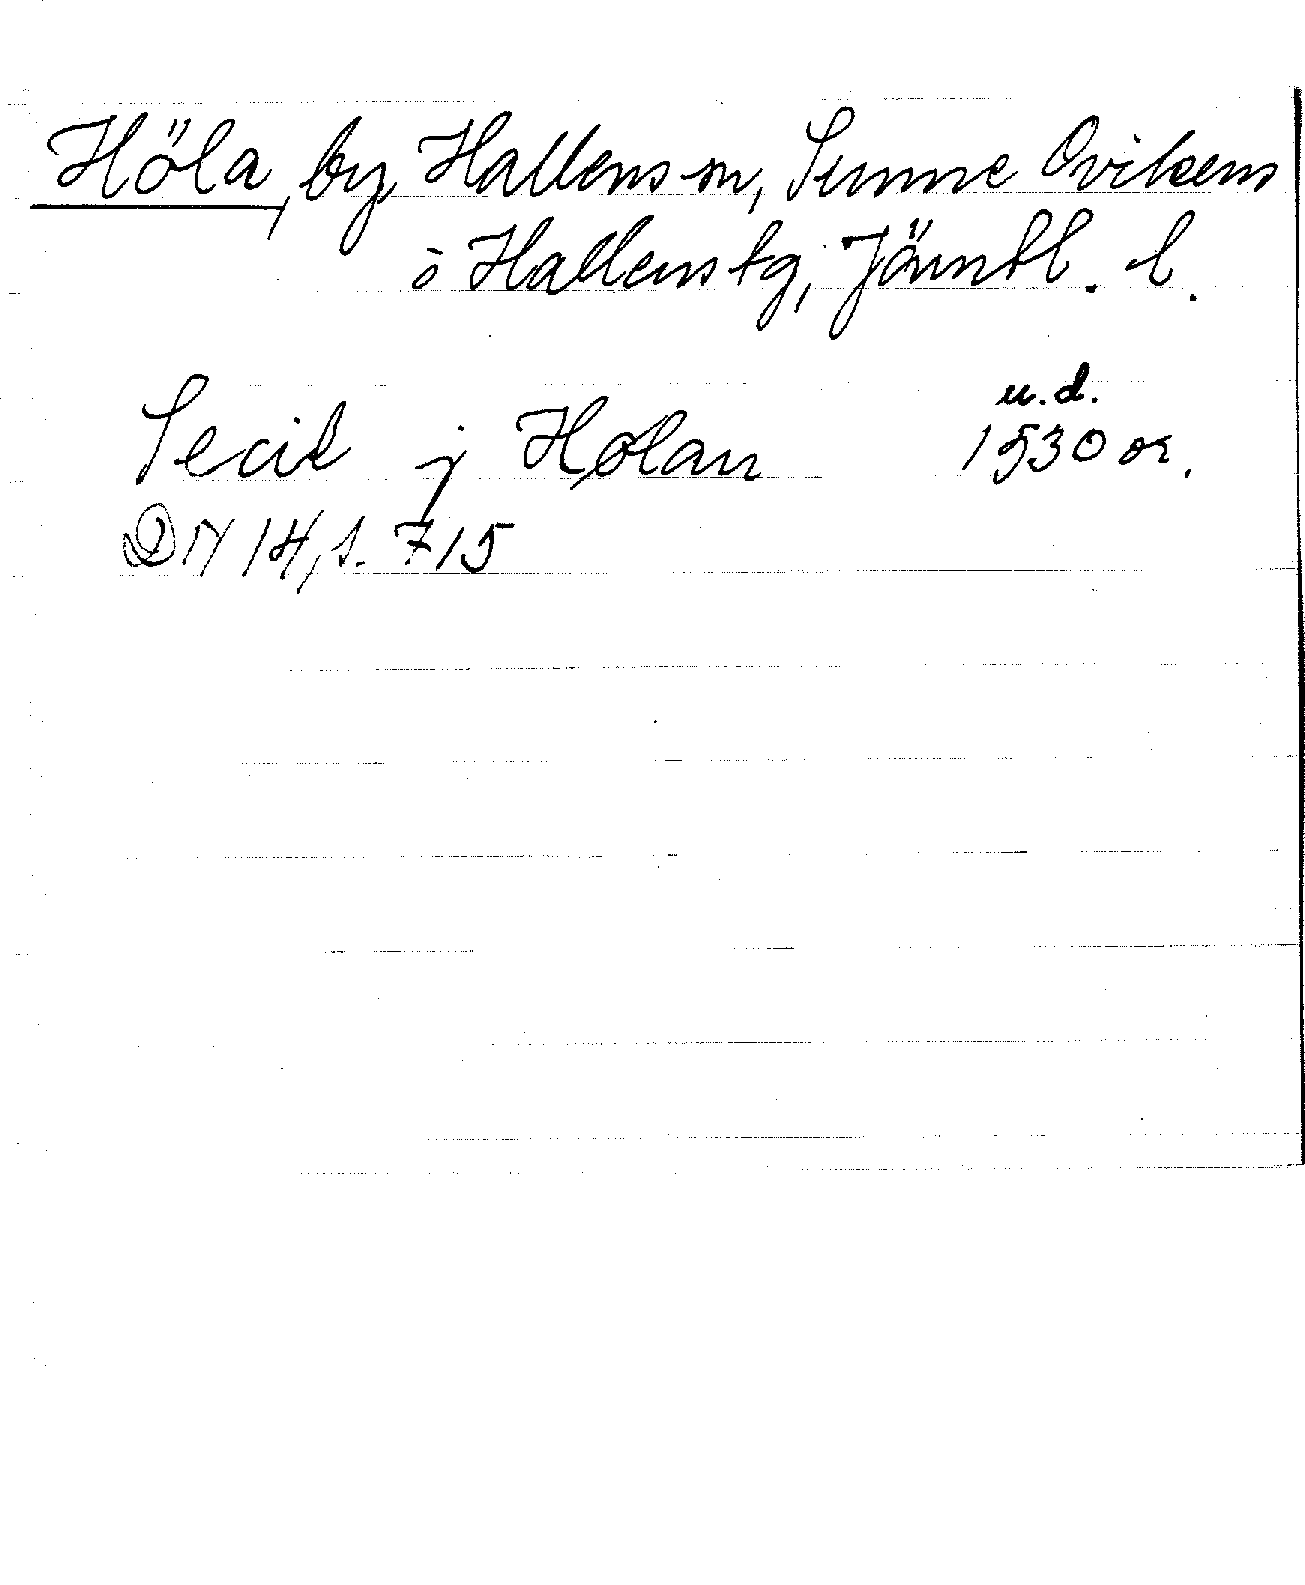 Höla, by, Hallens sn, Sunne Ovikens
o Hallens tg, Jämtl. l.
u.d.
Secil j Holan 1530 or.
DN 14, s. 715